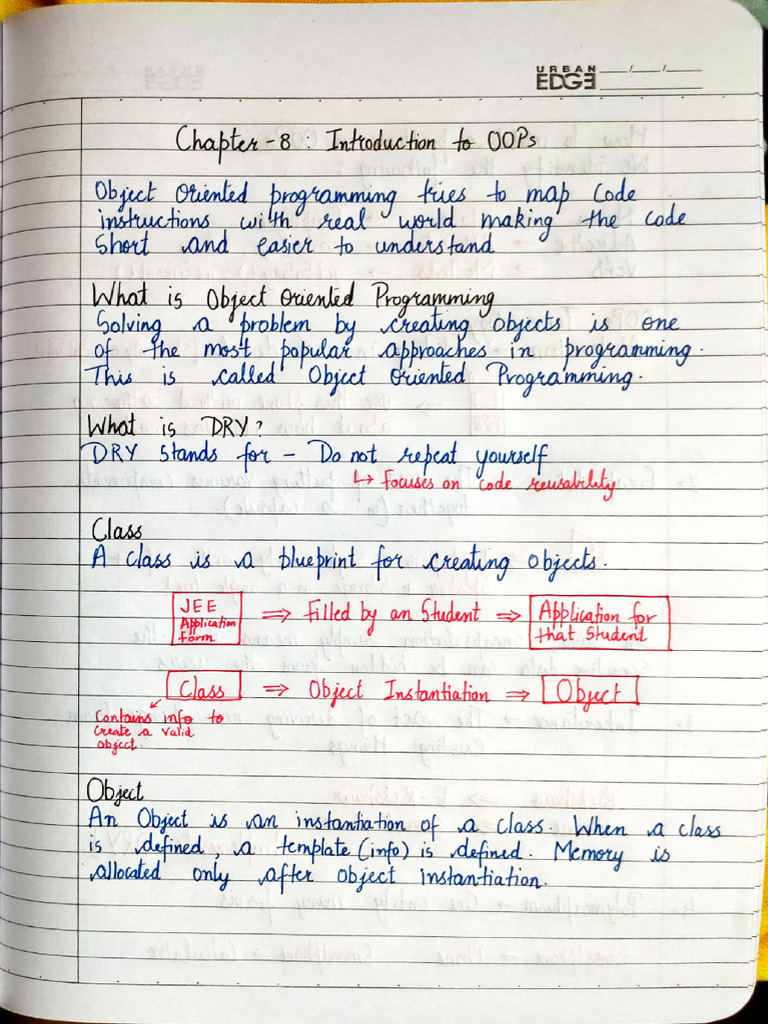 URBAN
EDGE
Chapter-8 : Introduction to OOPs
Object Oriented programming tries to map code
instructions with real world making the code
short and easier to understand
What is Object Oriented Programming
Solving a problem by creating objects is one
of the most popular approaches in programming.
This is called Object Oriented Programming.
What is DRY?
DRY stands for - Do not repeat yourself
↳ Focuses on code reusability
Class
A class is a blueprint for creating objects.
JEE Application form ⇒ Filled by an Student ⇒ Application for that Student
Class ⇒ Object Instantiation ⇒ Object
Contains info to
create a valid
object.
Object
An Object is an instantiation of a class. When a class
is defined, a template (info) is defined. Memory is
allocated only after object instantiation.